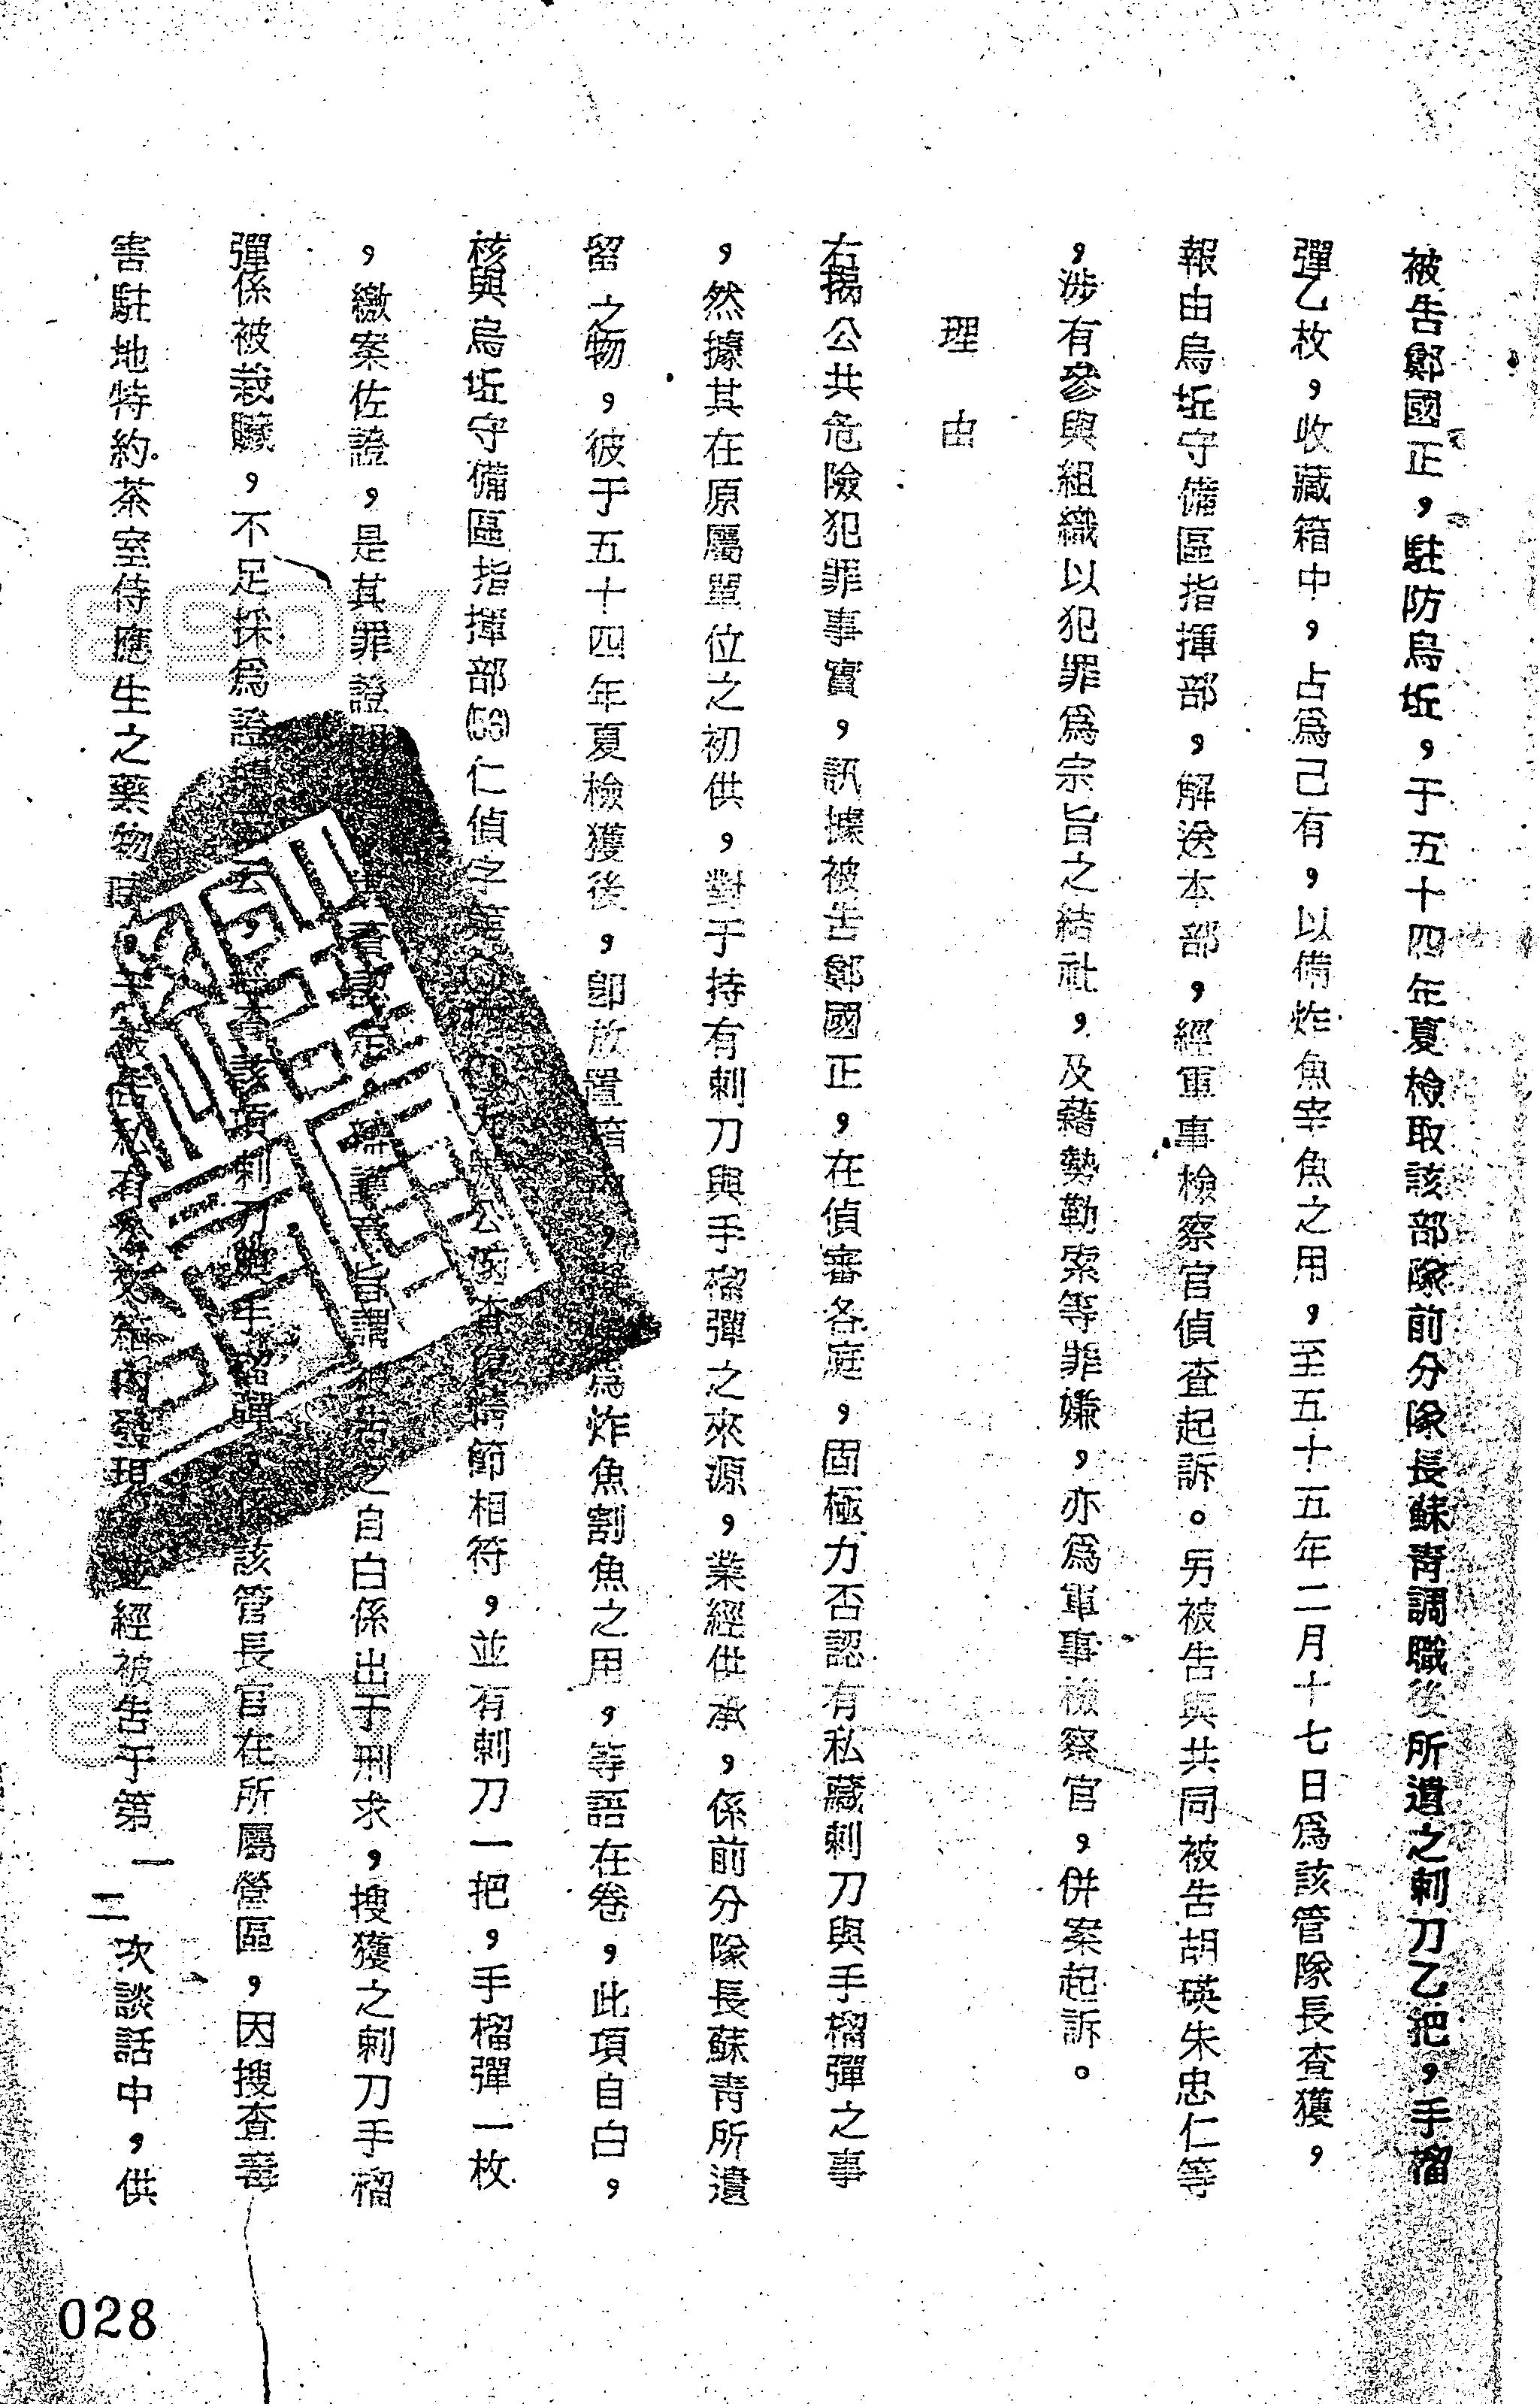 被告鄭國正，駐防烏坵，于五十四年夏檢取該部隊前分隊長蘇靑調職後所遺之刺刀乙把，手榴
彈乙枚，收藏箱中，占爲己有，以備炸魚宰魚之用，至五十五年二月十七日爲該管隊長查獲，
報由烏坵守備區指揮部，解送本部，經軍事檢察官偵查起訴。另被告與共同被告胡瑛朱忠仁等
，涉有參與組織以犯罪爲宗旨之結社，及藉勢勒索等罪嫌，亦爲軍事檢察官，併案起訴。
理由
右揭公共危險犯罪事實，訊據被告鄭國正，在偵審各庭，固極力否認有私藏刺刀與手榴彈之事
，然據其在原屬單位之初供，對于持有刺刀與手榴彈之來源，業經供承，係前分隊長蘇靑所遺
留之物，彼于五十四年夏檢獲後，卽放置箱爲炸魚割魚之用，等語在卷，此項自白，
核與烏坵守備區指揮部(55)仁偵字第公函查復情節相符，並有刺刀一把，手榴彈一枚
，繳案佐證，是其罪證之自白係出于刑求，搜獲之刺刀手榴
彈係被栽贓，不足採爲證查該項刺刀與手榴彈，該管長官在所屬營區，因搜查毒
害駐地特約茶室侍應生之藥物時，被告私有箱內發現，並經被告于第一二次談話中，供
028